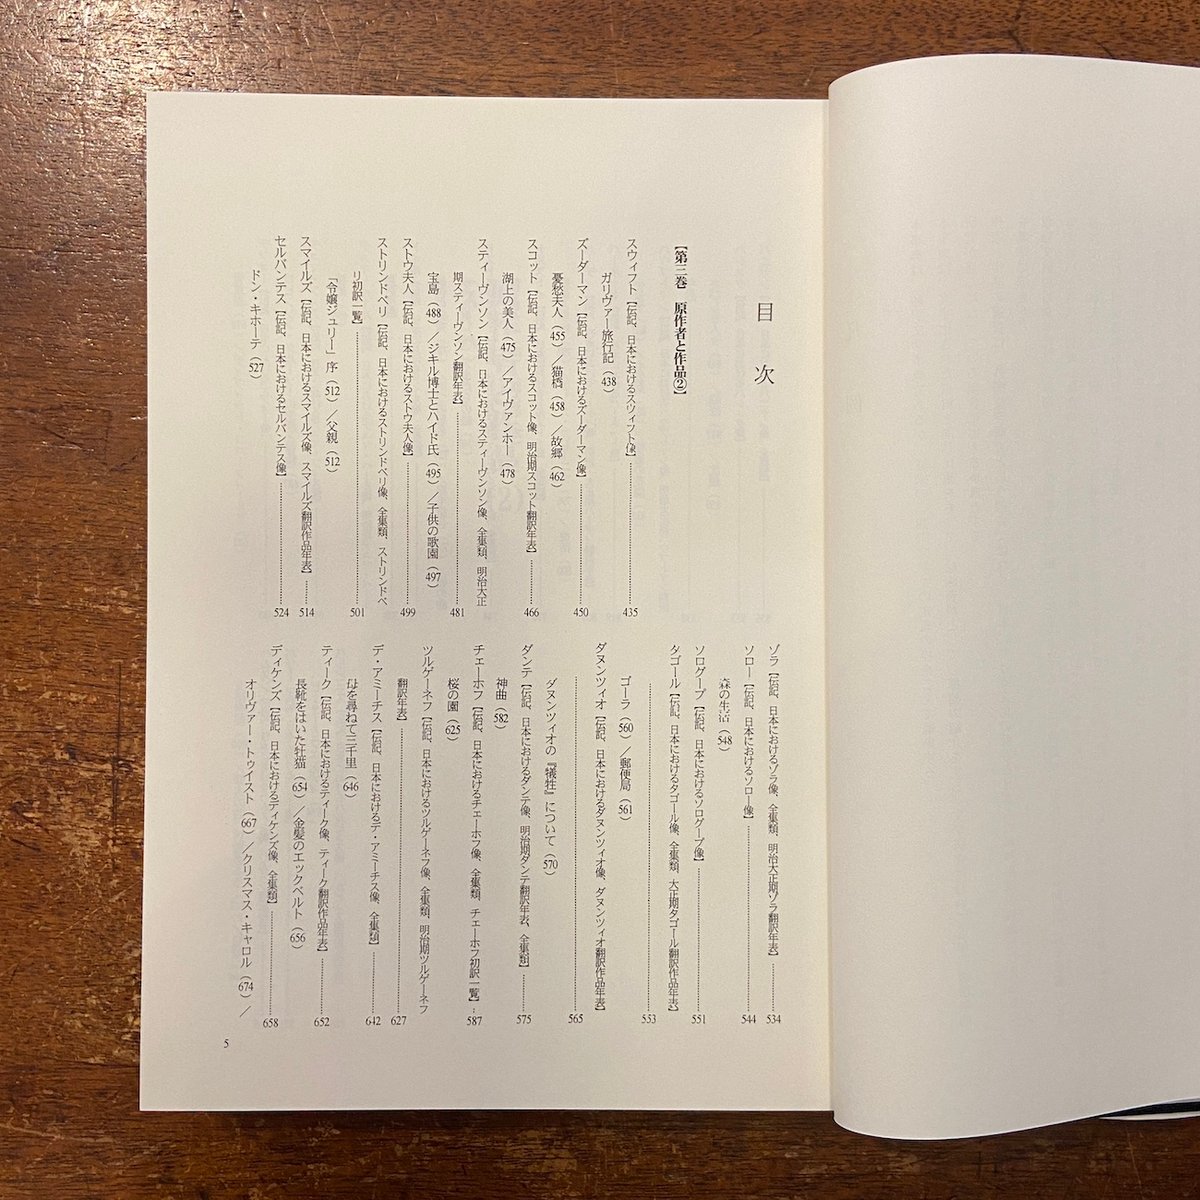 目次
【第三巻　原作者と作品②】
スウィフト【伝記、日本におけるスウィフト像】……435
ガリヴァー旅行記（438）
ズーダーマン【伝記、日本におけるズーダーマン像】……450
憂愁夫人（455）／猫橋（458）／故郷（462）
スコット【伝記、日本におけるスコット像、明治期スコット翻訳年表】……466
湖上の美人（475）／アイヴァンホー（478）
スティーヴンソン【伝記、日本におけるスティーヴンソン像、全集類、明治大正
期スティーヴンソン翻訳年表】……481
宝島（488）／ジキル博士とハイド氏（495）／子供の歌園（497）
ストウ夫人【伝記、日本におけるストウ夫人像】……499
ストリンドベリ【伝記、日本におけるストリンドベリ像、全集類、ストリンドベ
リ初訳一覧】……501
「令嬢ジュリー」序（512）／父親（512）
スマイルズ【伝記、日本におけるスマイルズ像、スマイルズ翻訳作品年表】……514
セルバンテス【伝記、日本におけるセルバンテス像】……524
ドン・キホーテ（527）
ゾラ【伝記、日本におけるゾラ像、全集類、明治大正期ゾラ翻訳年表】……534
ソロー【伝記、日本におけるソロー像】……544
森の生活（548）
ソログープ【伝記、日本におけるソログープ像】……551
タゴール【伝記、日本におけるタゴール像、全集類、大正期タゴール翻訳作品年表】
……553
ゴーラ（560）／郵便局（561）
ダヌンツィオ【伝記、日本におけるダヌンツィオ像、ダヌンツィオ翻訳作品年表】
……565
ダヌンツィオの『犠牲』について（570）
ダンテ【伝記、日本におけるダンテ像、明治期ダンテ翻訳年表、全集類】……575
神曲（582）
チェーホフ【伝記、日本におけるチェーホフ像、全集類、チェーホフ初訳一覧】…587
桜の園（625）
ツルゲーネフ【伝記、日本におけるツルゲーネフ像、全集類、明治期ツルゲーネフ
翻訳年表】……627
デ・アミーチス【伝記、日本におけるデ・アミーチス像、全集類】……642
母を尋ねて三千里（646）
ティーク【伝記、日本におけるティーク像、ティーク翻訳作品年表】……652
長靴をはいた牡猫（654）／金髪のエックベルト（656）
ディケンズ【伝記、日本におけるディケンズ像、全集類】……658
オリヴァー・トゥイスト（667）／クリスマス・キャロル（674）／
5